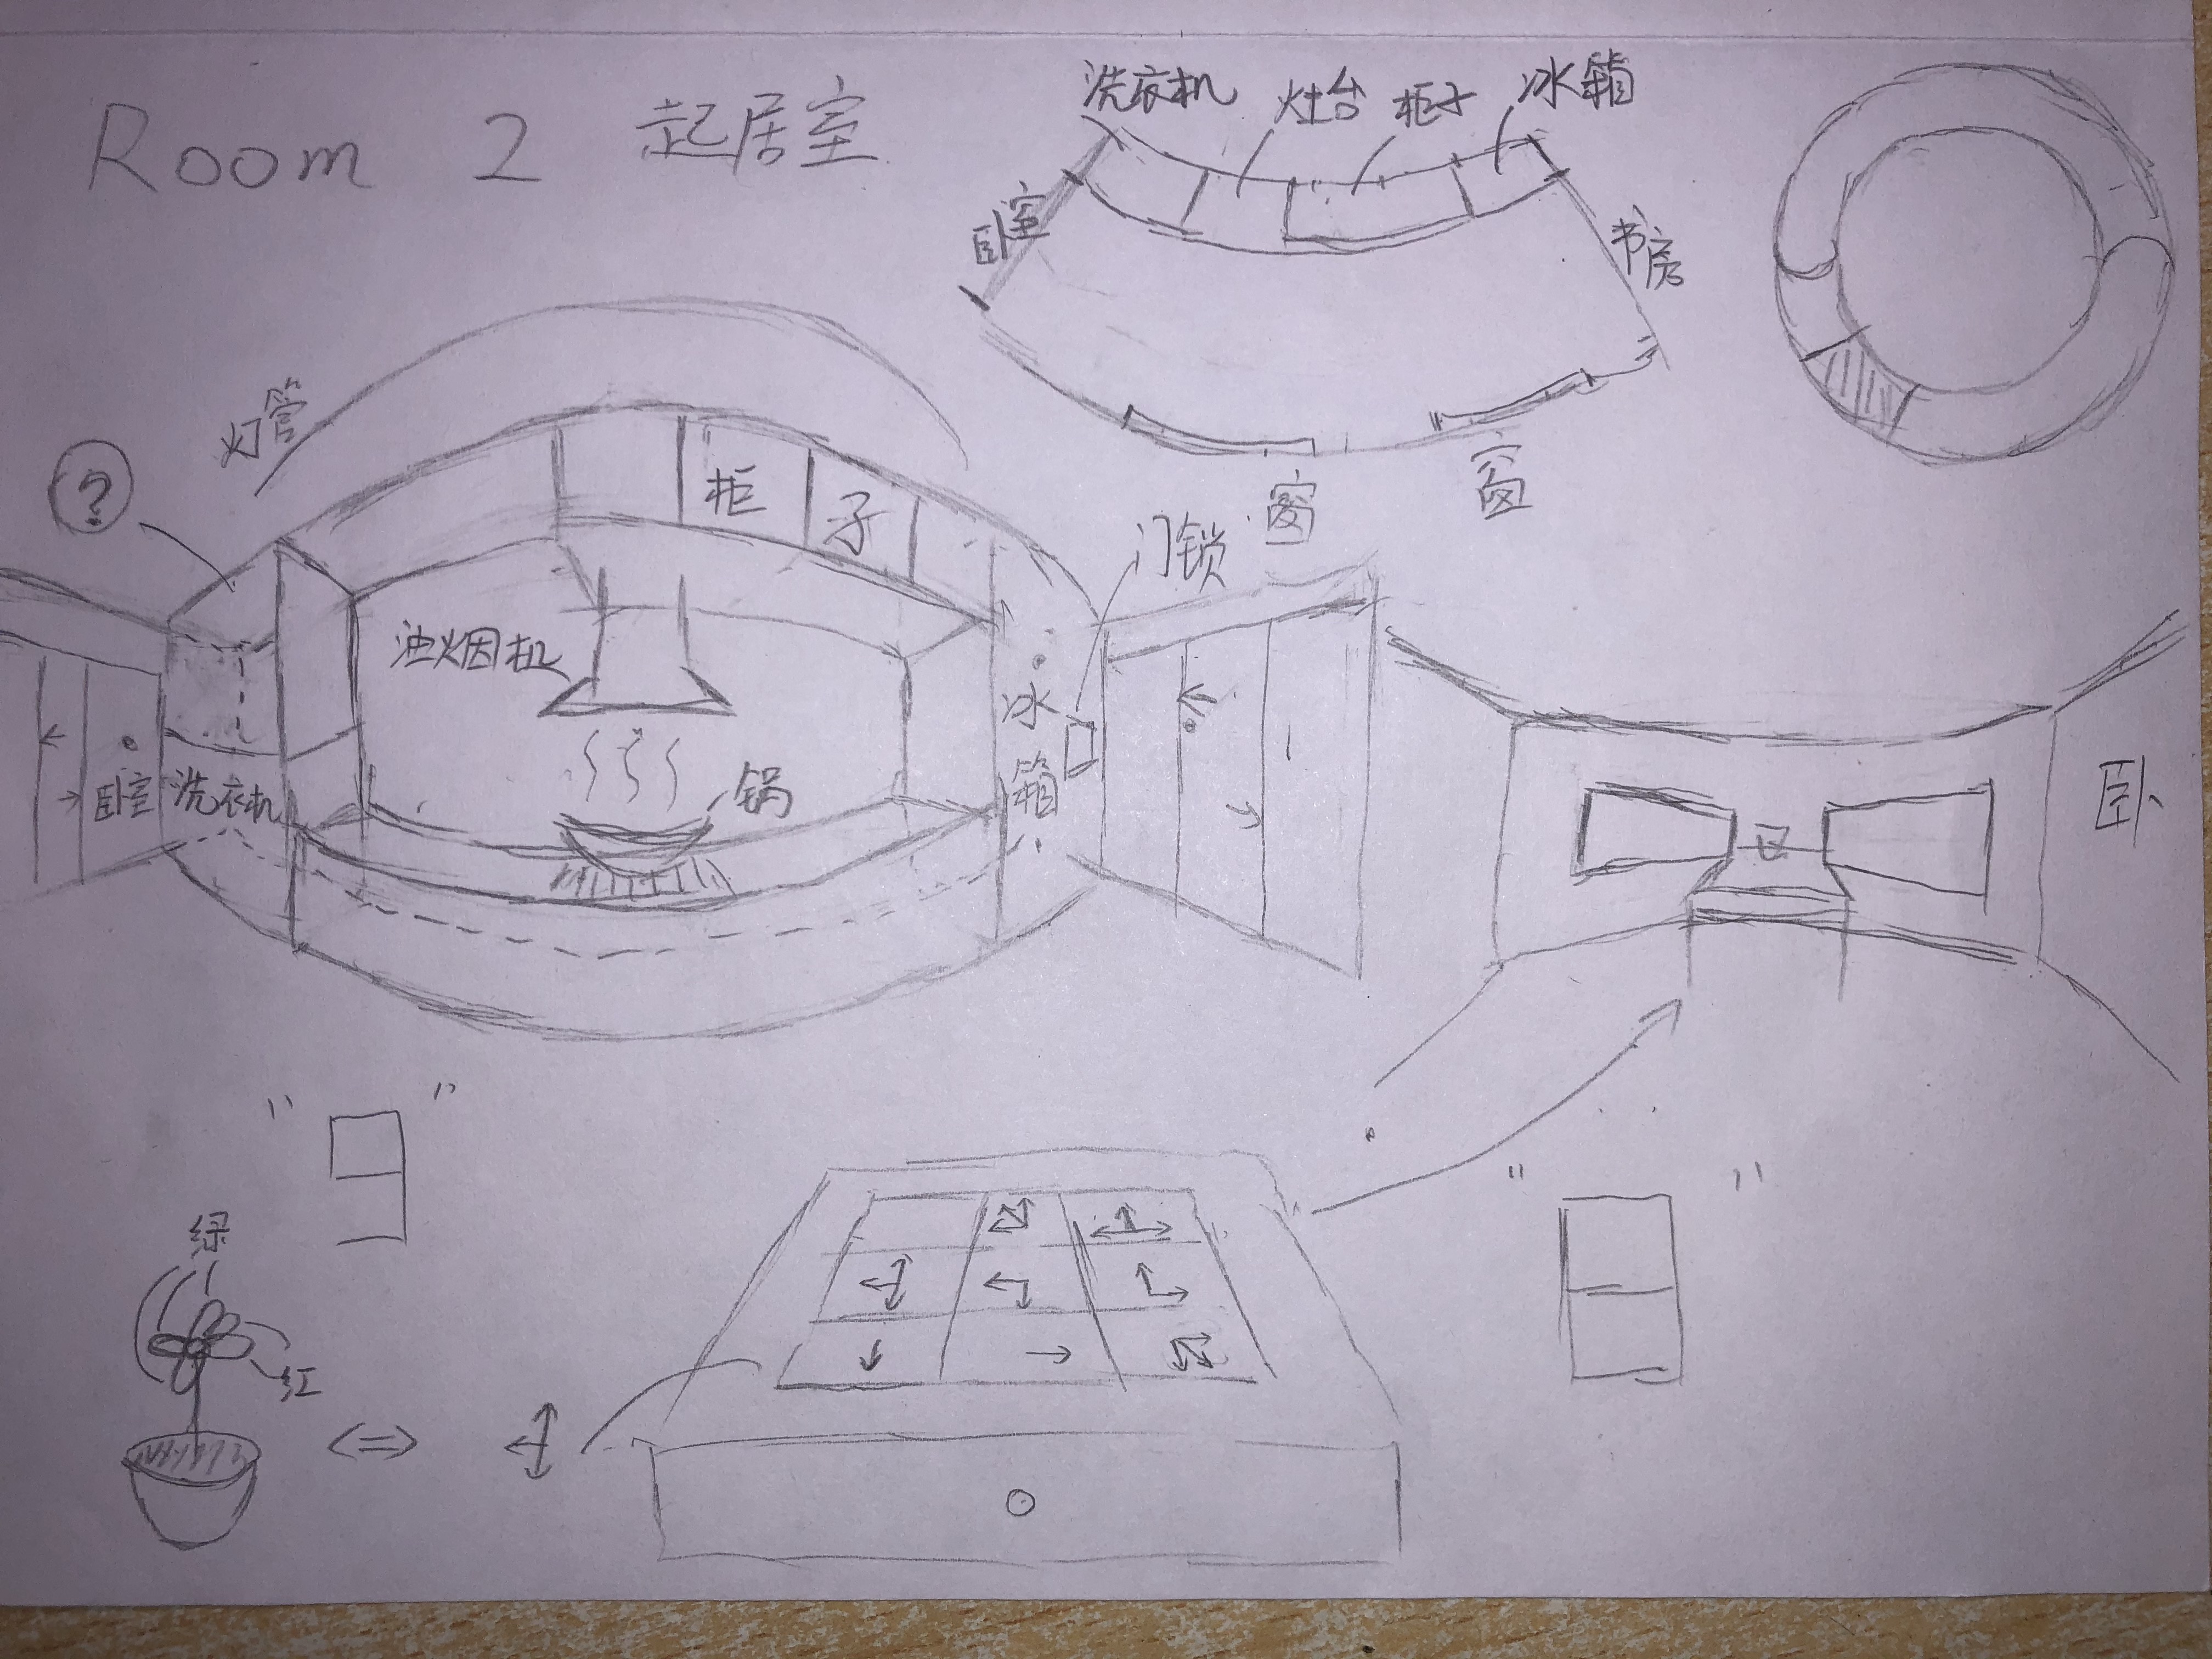 Room 2 起居室
洗衣机
灶台
柜子
冰箱
卧室
书房
窗
窗
灯管
?
柜子
门锁
油烟机
冰箱
锅
卧室
洗衣机
卧
"
"
"
"
绿
红